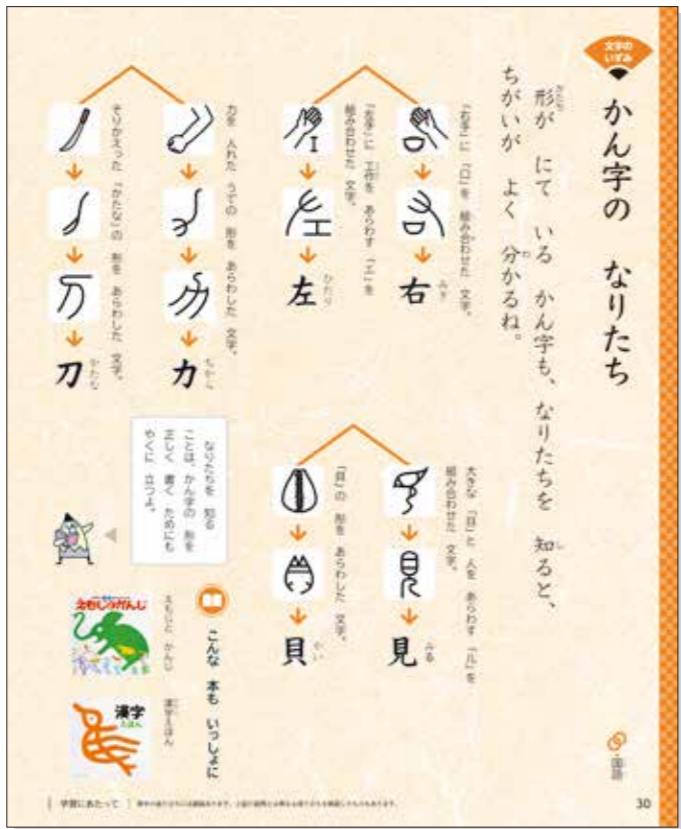 文字の
いずみ
かん字の なりたち
形が にて いる かん字も、なりたちを 知ると、
ちがいが よく 分かるね。
「右手」に 「口」を 組み合わせた 文字。
右
みぎ
「左手」に 工作を あらわす 「エ」を
組み合わせた 文字。
左
ひだり
力を 入れた うでの 形を あらわした 文字。
力
ちから
そりかえった 「かたな」の 形を あらわした 文字。
刀
かたな
大きな 「目」と 人を あらわす 「儿」を
組み合わせた 文字。
見
みる
「貝」の 形を あらわした 文字。
貝
かい
なりたちを 知る
ことは、かん字の 形を
正しく 書く ためにも
やくに 立つよ。
こんな 本も いっしょに
えもじと かんじ
漢字えほん
漢字
えほん
国語
学習にあたって
30